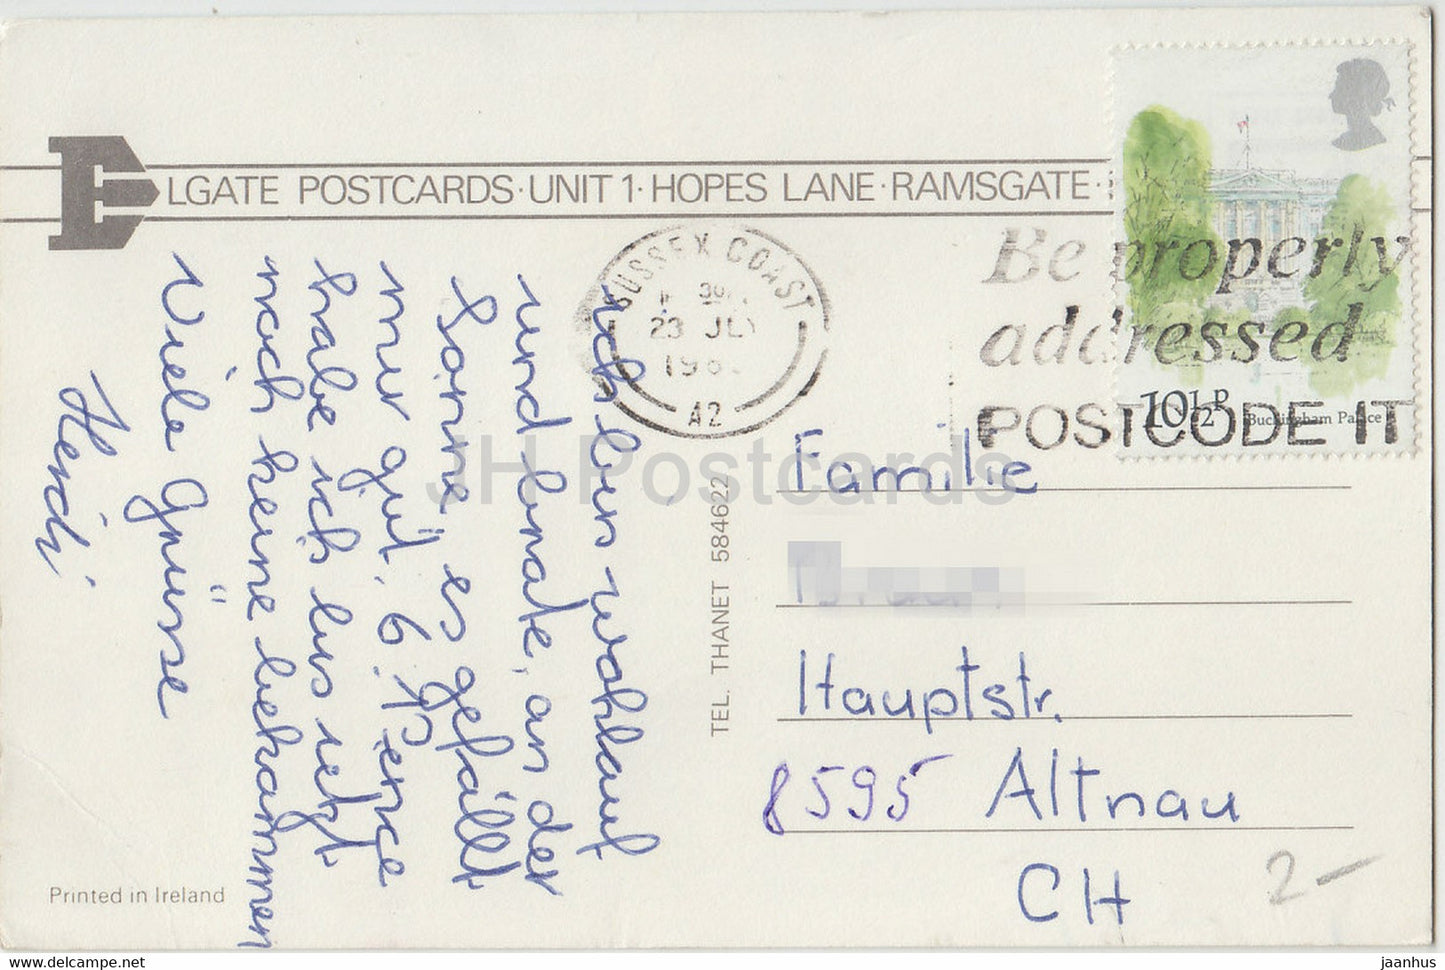 ELGATE POSTCARDS·UNIT 1·HOPES LANE·RAMSGATE·
SUSSEX COAST
23 JLY
A2
Be properly
addressed
POSTCODE IT
10½P
Buckingham Palace
ich bin wohlauf
und brate, an der
Sonne, es gefällt
mir gut, 6. Pence
habe ich bis jetzt
noch keine bekommen
Viele Grüsse
Heidi
TEL. THANET 584622
Printed in Ireland
Familie
Hauptstr.
8595 Altnau
CH
2-
JH Postcards
www.delcampe.net
jaanhus